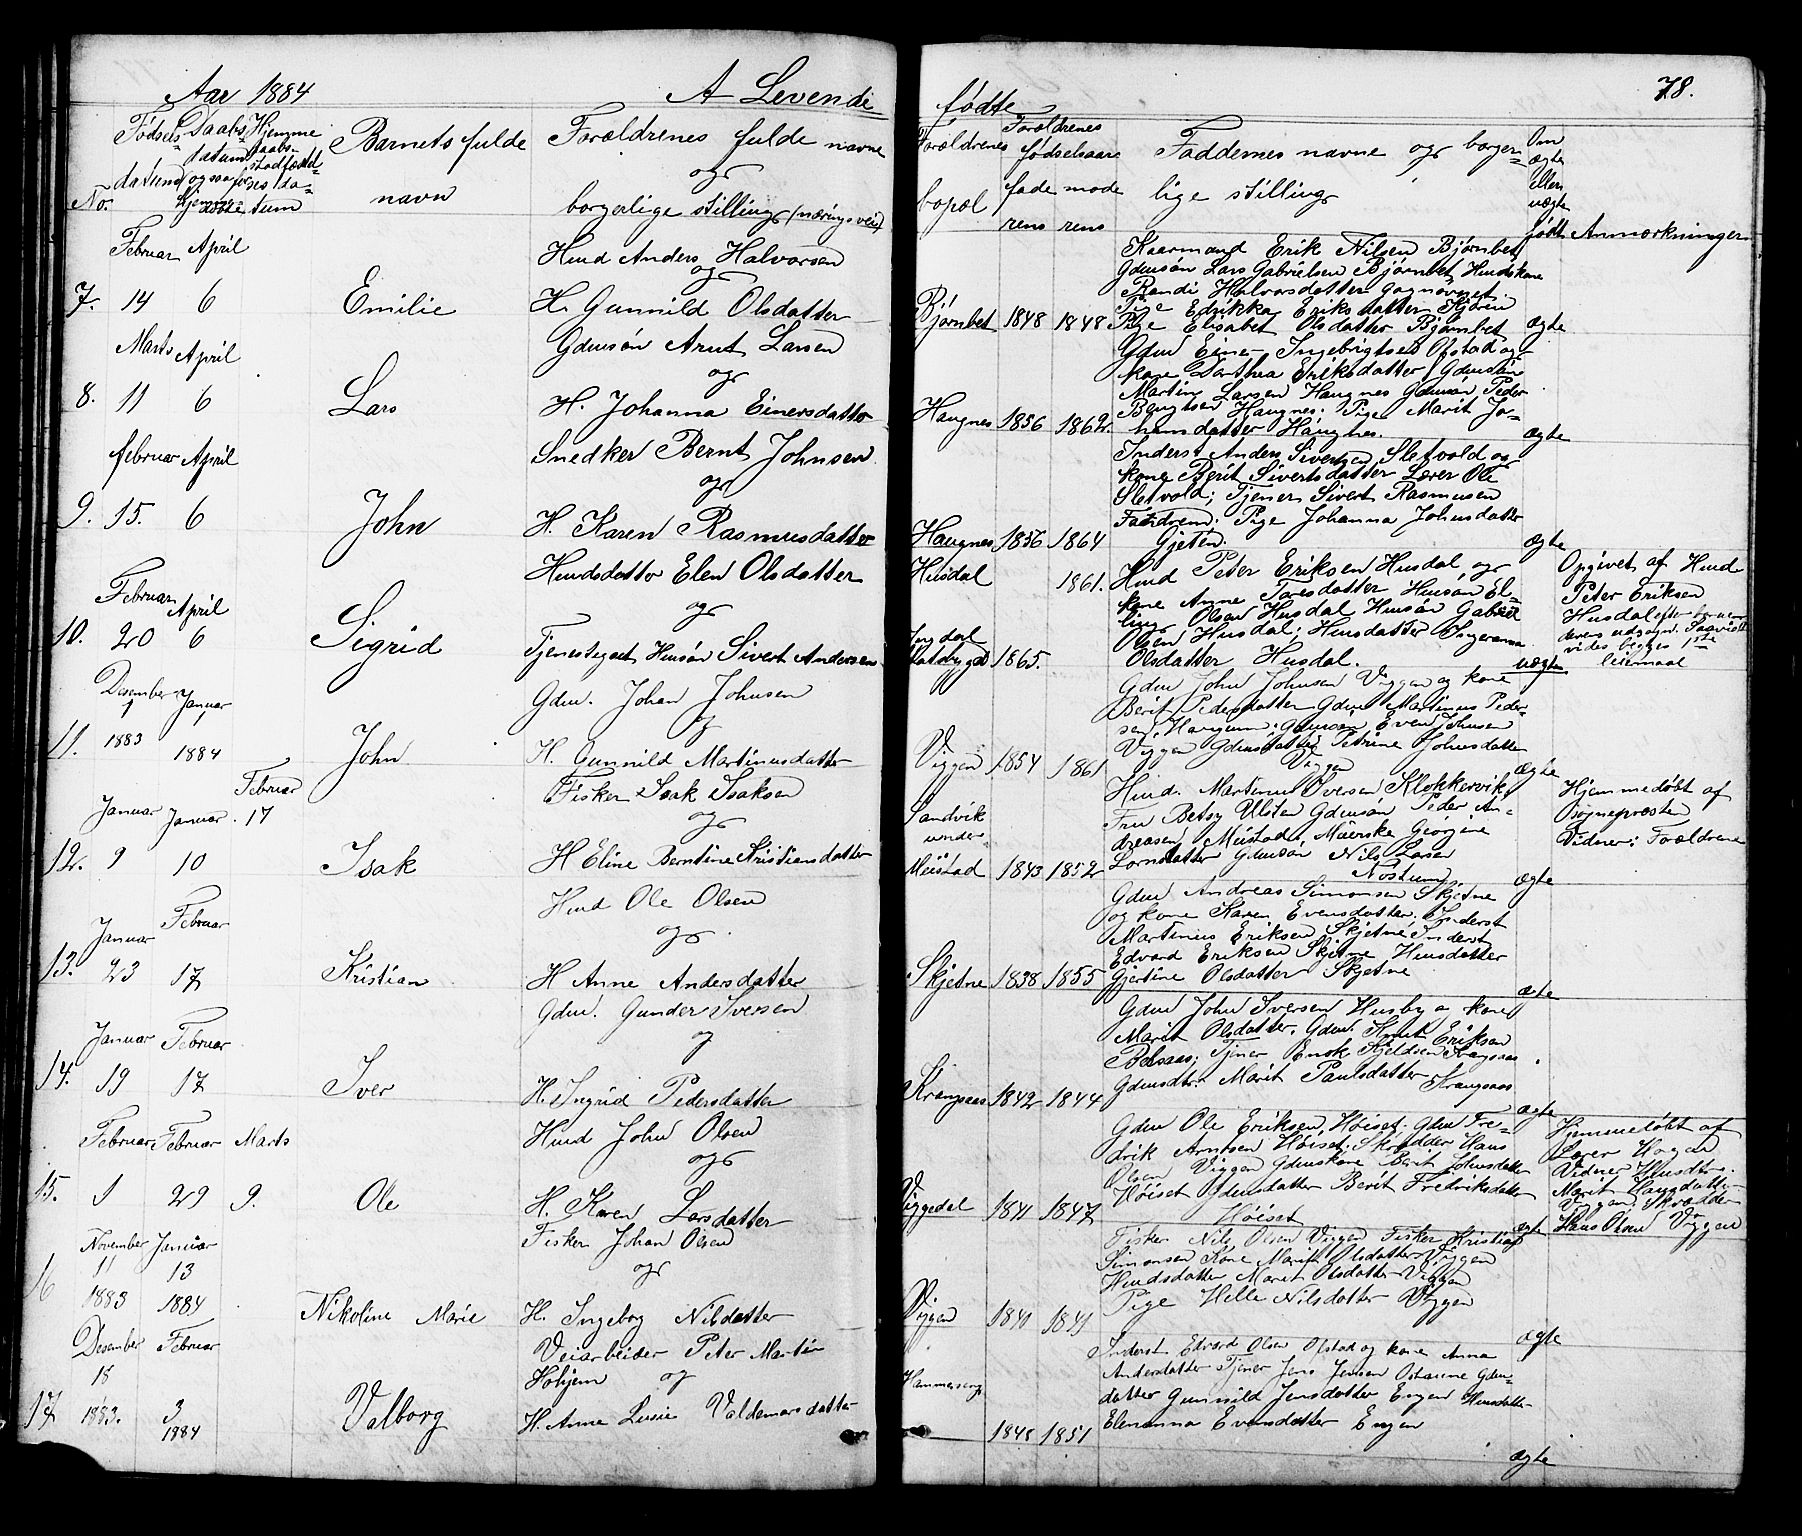 Aar 1884
A Levende
fødte
78.
No.
Fødsels
datum
Daabs
datum
ogsaa for
hjemme
døbte
Hjemme
daabs
stadfæstel
ses da=
tum
Barnets fulde
navn
Forældrenes fulde navne
og
borgerlige stilling (næringsvei)
Forældrenes
bopæl
Forældrenes
fødselsaar
fade mode
rens rens
Faddernes navne og borger=
lige stilling
Om
ægte
eller
uægte
født
Anmærkninger
Februar April
7. 14 6
Emilie
Hmd Anders Halvorsen
og
H. Gunnild Olsdatter
Bjørnbet 1848 1848
Kaarmand Erik Nilsen Bjørnbet
Gdmsøn Lars Gabrielsen Bjørnbet Hmdskone
Randi Halvorsdatter
Pige Edrikka Eriksdatter
Pige Elisabet Olsdatter Bjørnbet
ægte
Marts April
8. 11 6
Lars
Gdmsøn Arnt Larsen
og
H. Johanna Einersdatter
Haugnes 1856 1862.
Gdm Einer Ingebrigtsen Ofstad og
kone Dorthea Eriksdatter, Gdmsøn
Martin Larsen Haugnes Gdmsøn Peder
Bengtsen Haugnes. Pige Marit Jo=
hansdatter Haugnes.
ægte
februar April
9. 15. 6
John
Snedker Bernt Johnsen
og
H. Karen Rasmusdatter
Haugnes 1856 1864
Inderst Anders Sivertsen Sletvold og
kone Berit Sivertsdatter Lærer Ole
Sletvold; Tjener Sivert Rasmusen
Fandrem. Pige Johanna Johnsdatter
Gjeten.
ægte
Februar April
10. 20 6
Sigrid
Hmdsdatter Elen Olsdatter
og
Tjenestegut Hmsøn Sivert Andersen
Husdal 1861.
Ingdal
1865.
Hmd Peter Eriksen Husdal og
kone Anne Toresdatter Hmsøn El=
ling Olsen Husdal Hmsøn Gabriel
Olsen Husdal; Hmsdatter
Olsdatter Husdal.
uægte
Opgivet af Hmd
Peter Eriksen
Husdal efter
derens udsagn. Saavidt
vides begges 1ste
leiermaal
Desember Januar
1 1
11. 1883 1884
John
Gdm. Johan Johnsen
og
H. Gunnild Martinusdatter
Viggen 1854 1861
Gdm John Johnsen Viggen og kone
Berit Pedersdatter Gdm Martinus Peder=
sen, Gdmsøn Even Johnsen
Viggen Gdmsdatter Petrine Johnsdatter
Viggen
ægte
Februar
Januar Januar 17
12. 9 10
Isak
Fisker Isak Isaksen
og
H Eline Berntine Kristiansdatter
Sandvik
under
Mustad 1843 1852
Hmd. Martinus Iversen Klokkervik,
Fru Betsy Ulsten Gdmsøn Peder An=
dreasen, Mustad, Georgine
Larsdatter Gdmsøn Nils Larsen
ægte
Hjemmedøbt af
Sognepresten
Vidner: Forældrene
Januar Februar
13. 23 17
Kristian
Hmd Ole Olsen
og
H Anne Andersdatter
Skjetne 1838 1855
Gdm Andreas Simonsen Skjetne
og kone Karen Evensdatter. Inderst
Martinus Eriksen Skjetne Inderst
Edvard Eriksen Skjetne Hmsdatter
Gjertine Olsdatter Skjetne
ægte
Januar Februar
14. 19 17
Iver
Gdm. Gunder Iversen
og
H. Ingrid Pedersdatter
Krangsaas 1842 1844
Gdm John Iversen Husby og kone
Marit Olsdatter. Gdm. Knut Eriksen
Belsaas; Tjener Enok Kjeldsen Krangsaas
Gdmsdtr. Marit Paulsdatter Krangsaas
ægte
Februar Februar Marts
15. 1 29 9.
Ole
Hmd John Olsen
og
H. Karen Larsdatter
Viggedal 1841 1847
Gdm Ole Eriksen, Høiset. Gdm Fre=
drik Arntsen Høiset. Skrædder Hans
Olsen Viggen Gdmskone Berit Johnsdatter
Høiset Gdmsdatter Berit Fredriksdatter
Høiset
ægte
Hjemmedøbt af
Lærer Hogen
Vidner Hmsdtr.
Marit
Viggen, Skrædder
Hans Olsen Viggen
November Januar
11 13
16 1883 1884
Nikoline Marie
Fisker Johan Olsen
og
H. Ingeborg Nilsdatter
Viggen 1840 1841
Fisker Nils Olsen Viggen Fisker Kristian
Simonsen Kone Marit Olsdatter Viggen
Hmdsdatter Marit Olsdatter Viggen
Pige Helle Nilsdatter Viggen
ægte
Desember Februar
18 3
17 1883. 1884
Valborg
Veiarbeider Peter Martin
Hohjem og
H. Anne Lusie Valdemarsdatter
1848 1851
Inderst Edvard Olsen Ofstad og kone Anna
Andersdatter Tjener Jens Jensen
datter Gunnild Jensdatter Engen Hmsdatter
Elenanna Evensdatter Engen
ægte